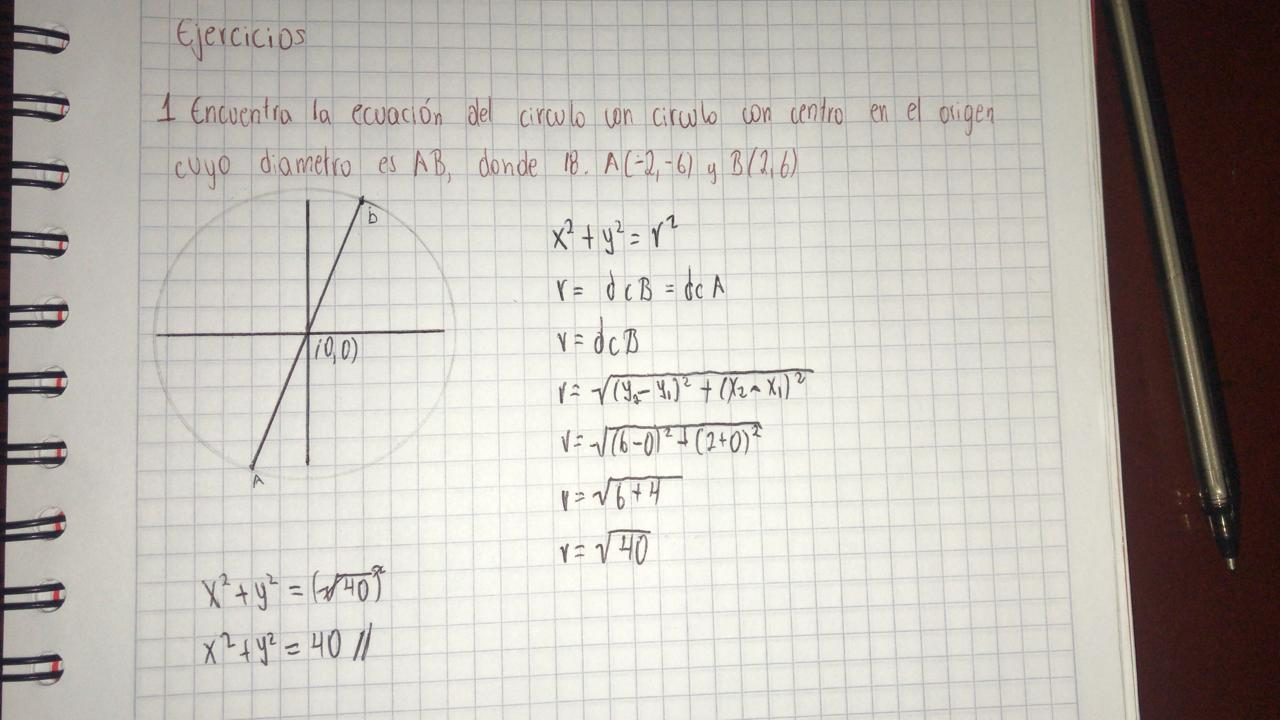 Ejercicios
1 Encuentra la ecuación del circulo con circulo con centro en el origen
cuyo diametro es AB, donde 18. A(-2,-6) y B(2,6)
B
(0,0)
A
x² + y² = r²
r = dcB = dcA
r = dcB
r = √(y₂ - y₁)² + (x₂ - x₁)²
r = √(6-0)² + (2+0)²
r = √6+4
r = √40
x² + y² = (√40)²
x² + y² = 40 //